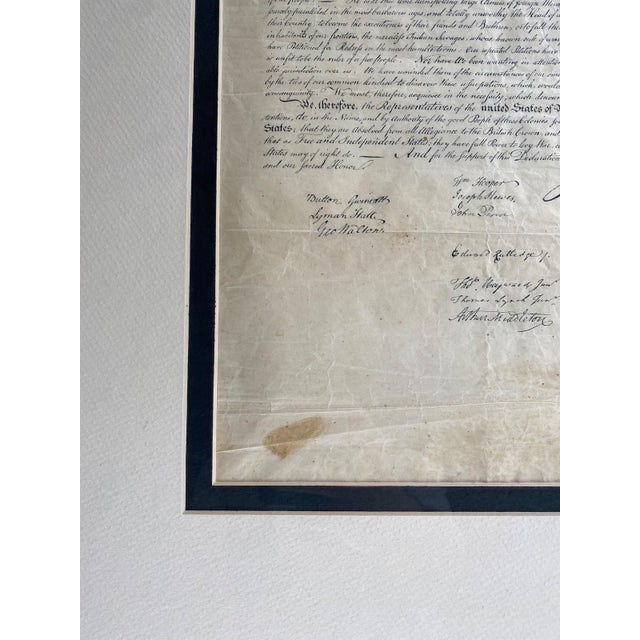 He is at this time transporting large Armies of foreign
paralleled in the most barbarous ages, and totally unworthy the Head of a
their Country, to become the executioners of their friends and Brethren,
inhabitants of our frontiers, the merciless Indian Savages, whose known
have Petitioned for Redress in the most humble terms: Our repeated Petitions have
is unfit to be the ruler of a free people. Nor have We been wanting in attention
able jurisdiction over us. We have reminded them of the circumstances of our
by the ties of our common kindred to disavow these usurpations, which, would
consanguinity. We must, therefore, acquiesce in the necessity, which
We, therefore, the Representatives of the united States of
tentions, do, in the Name, and by Authority of the good People of these Colonies
States; that they are Absolved from all Allegiance to the British Crown, and
that as Free and Independent States, they have full Power to levy War,
States may of right do. — And for the support of this Declaration
and our sacred Honor.
Button Gwinnett
Lyman Hall
Geo Walton
Wm Hooper
Joseph Hewes,
John Penn
Edward Rutledge /.
Thos. Heyward Junr.
Thomas Lynch Junr.
Arthur Middleton